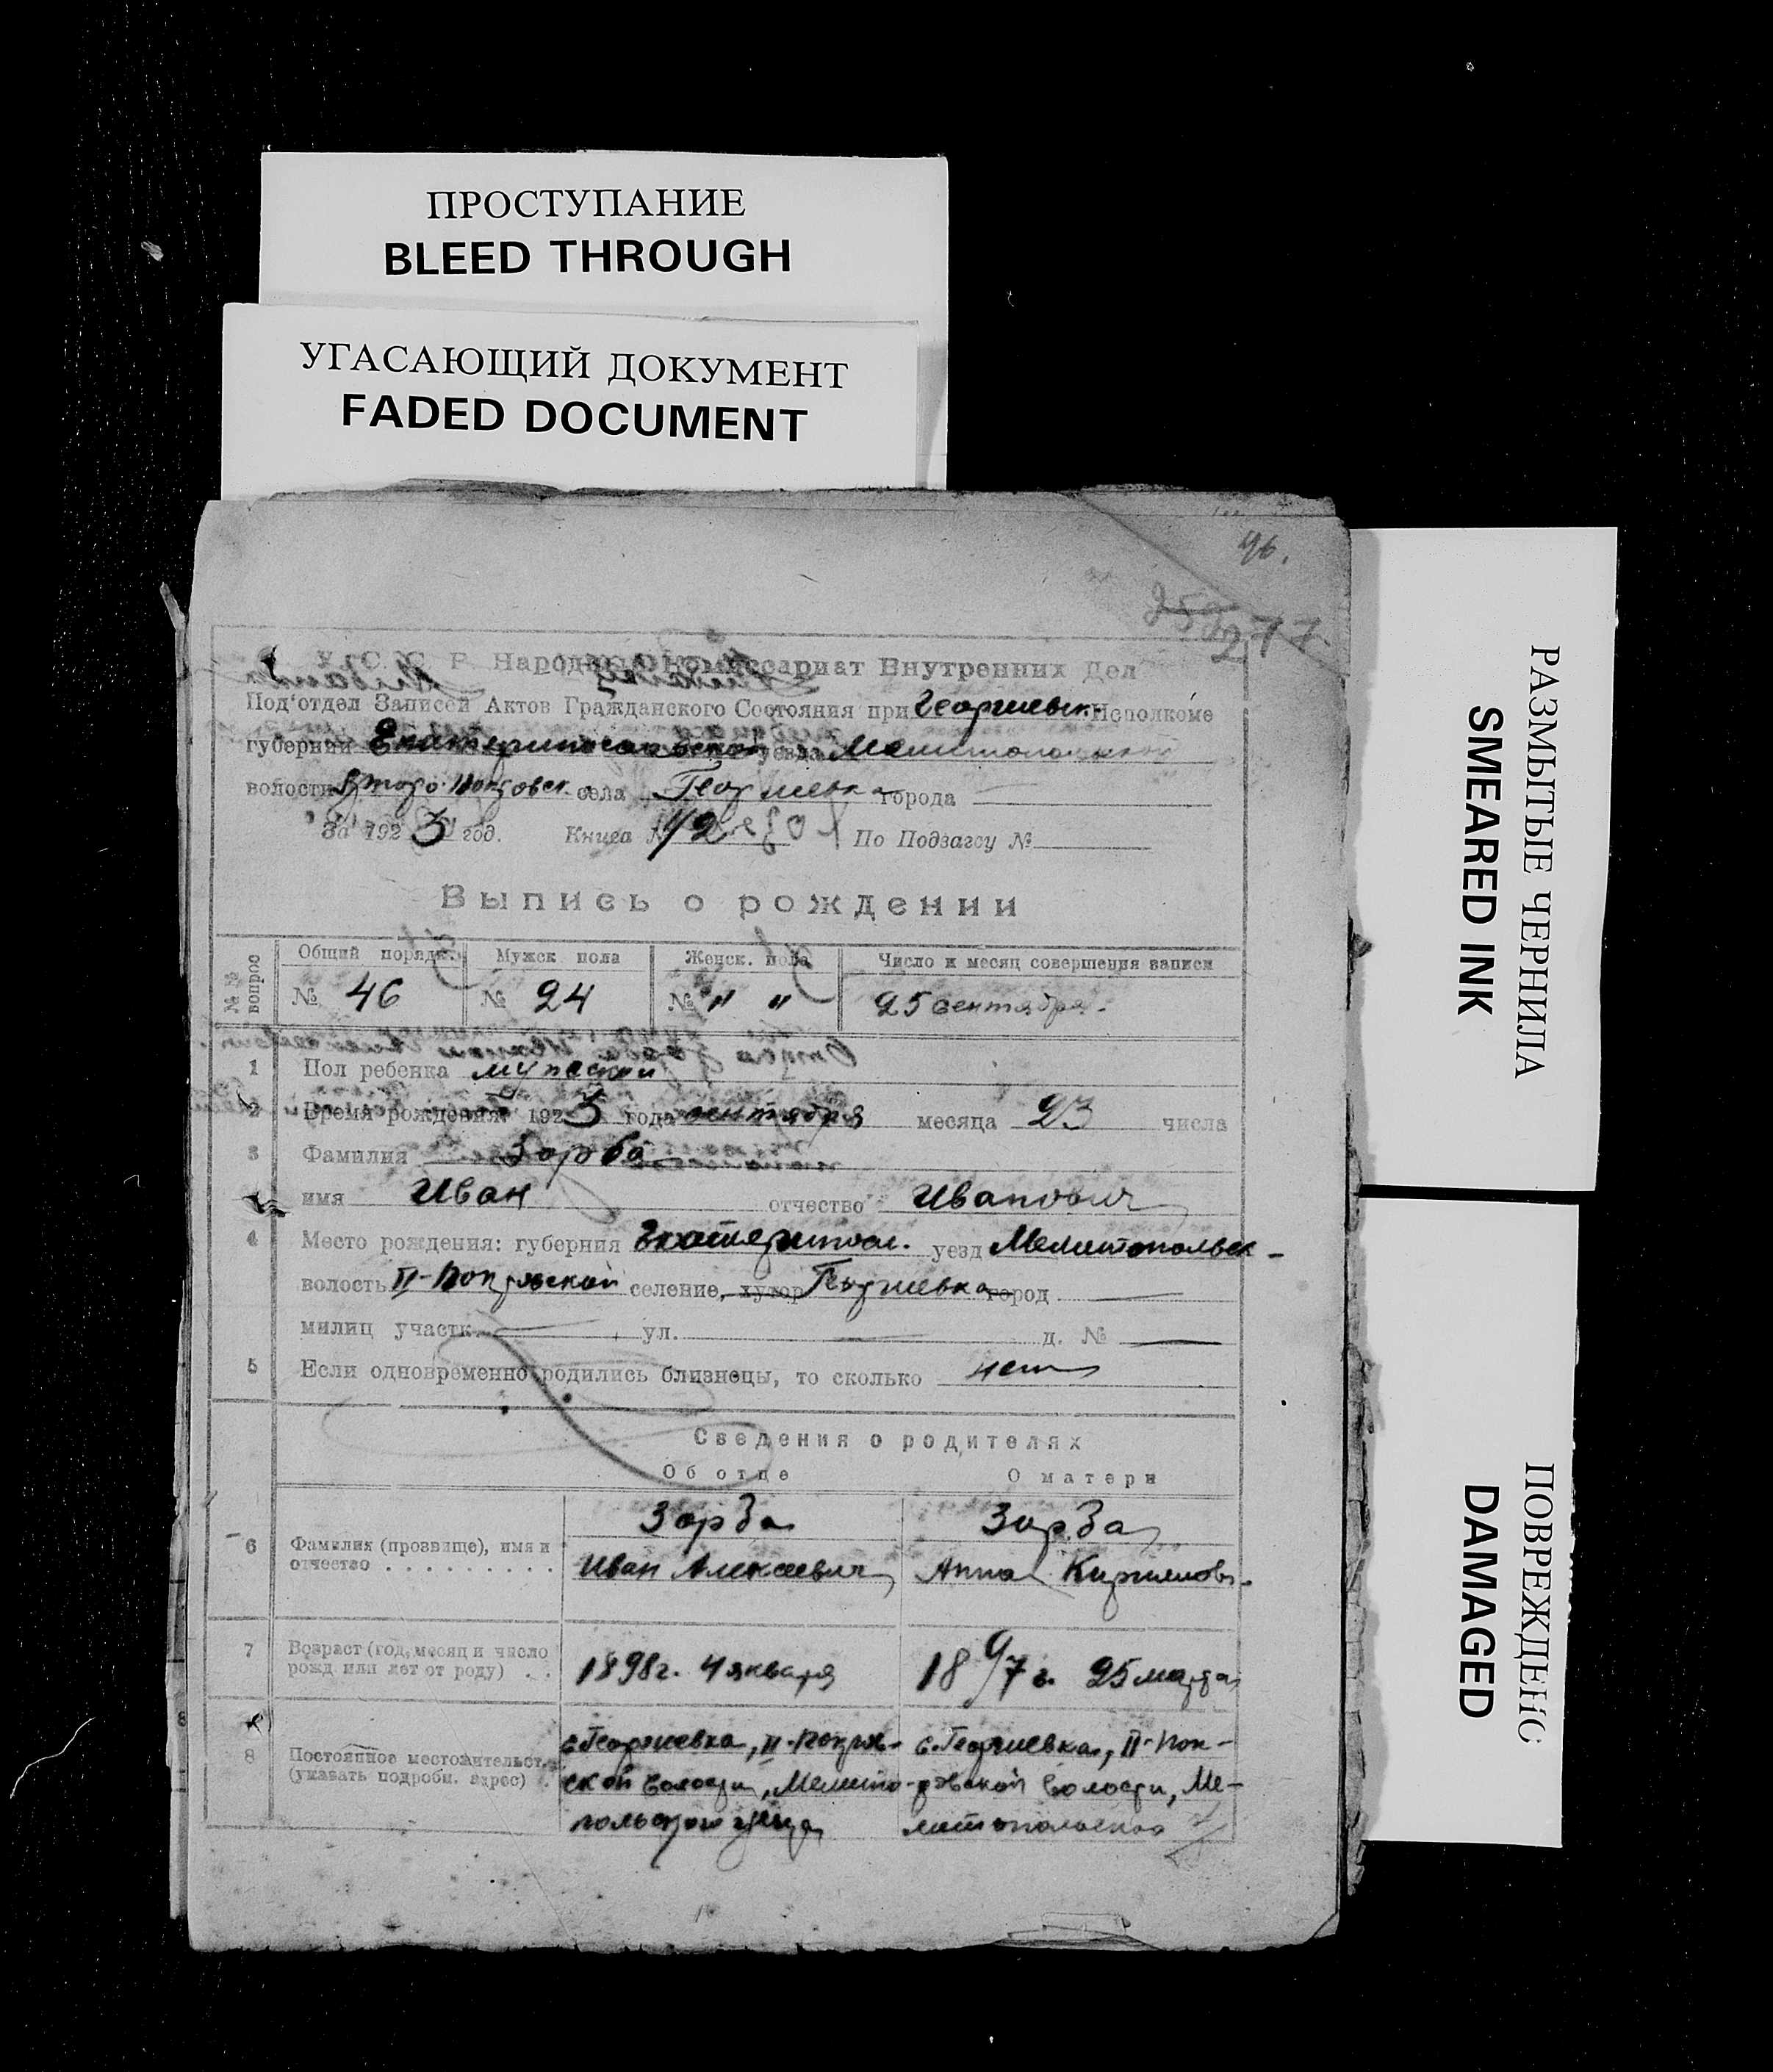 ПРОСТУПАНИЕ
BLEED THROUGH
УГАСАЮЩИЙ ДОКУМЕНТ
FADED DOCUMENT
РАЗМЫТЫЕ ЧЕРНИЛА
SMEARED INK
ПОВРЕЖДЕНО
DAMAGED
96.
277
У. С. С. Р. Народный Комиссариат Внутренних Дел
Под'отдел Записей Актов Гражданского Состояния при Георгиевск. Исполкоме
губернии Екатеринославской уезда Мелитопольской
волости Второ-Покровск. села Георгиевка города
За 1923 год. Книга № 2 По Подзагсу №
Выпись о рождении
№№ вопрос
Общий порядк. Мужск пола Женск. пола Число и месяц совершения записи
№ 46 № 24 № " " 25 сентября.
1 Пол ребенка мужеской
2 Время рождения: 1923 года сентября месяца 23 числа
3 Фамилия Зорба
имя Иван отчество Иванович
4 Место рождения: губерния Екатериносл. уезд Мелитопольск-
волость II-Покровской селение, хутор Георгиевка город
милиц участк. ул. д. №
5 Если одновременно родились близнецы, то сколько нет
Сведения о родителях
Об отце О матери
Зорба Зорба
6 Фамилия (прозвище), имя и
отчество . . . . . . . . . Иван Алексеевич Анна Кирилловн.
7 Возраст (год, месяц и число
рожд или лет от роду) . . 1898г. 4 января 1897 г. 25 марта
8 Постоянное местожительст.
(указать подробн. адрес) .
с. Георгиевка, II-Покров- с. Георгиевка, II-Пок-
ской волости, Мелито- ровской волости, Ме-
польского уезда литопольского